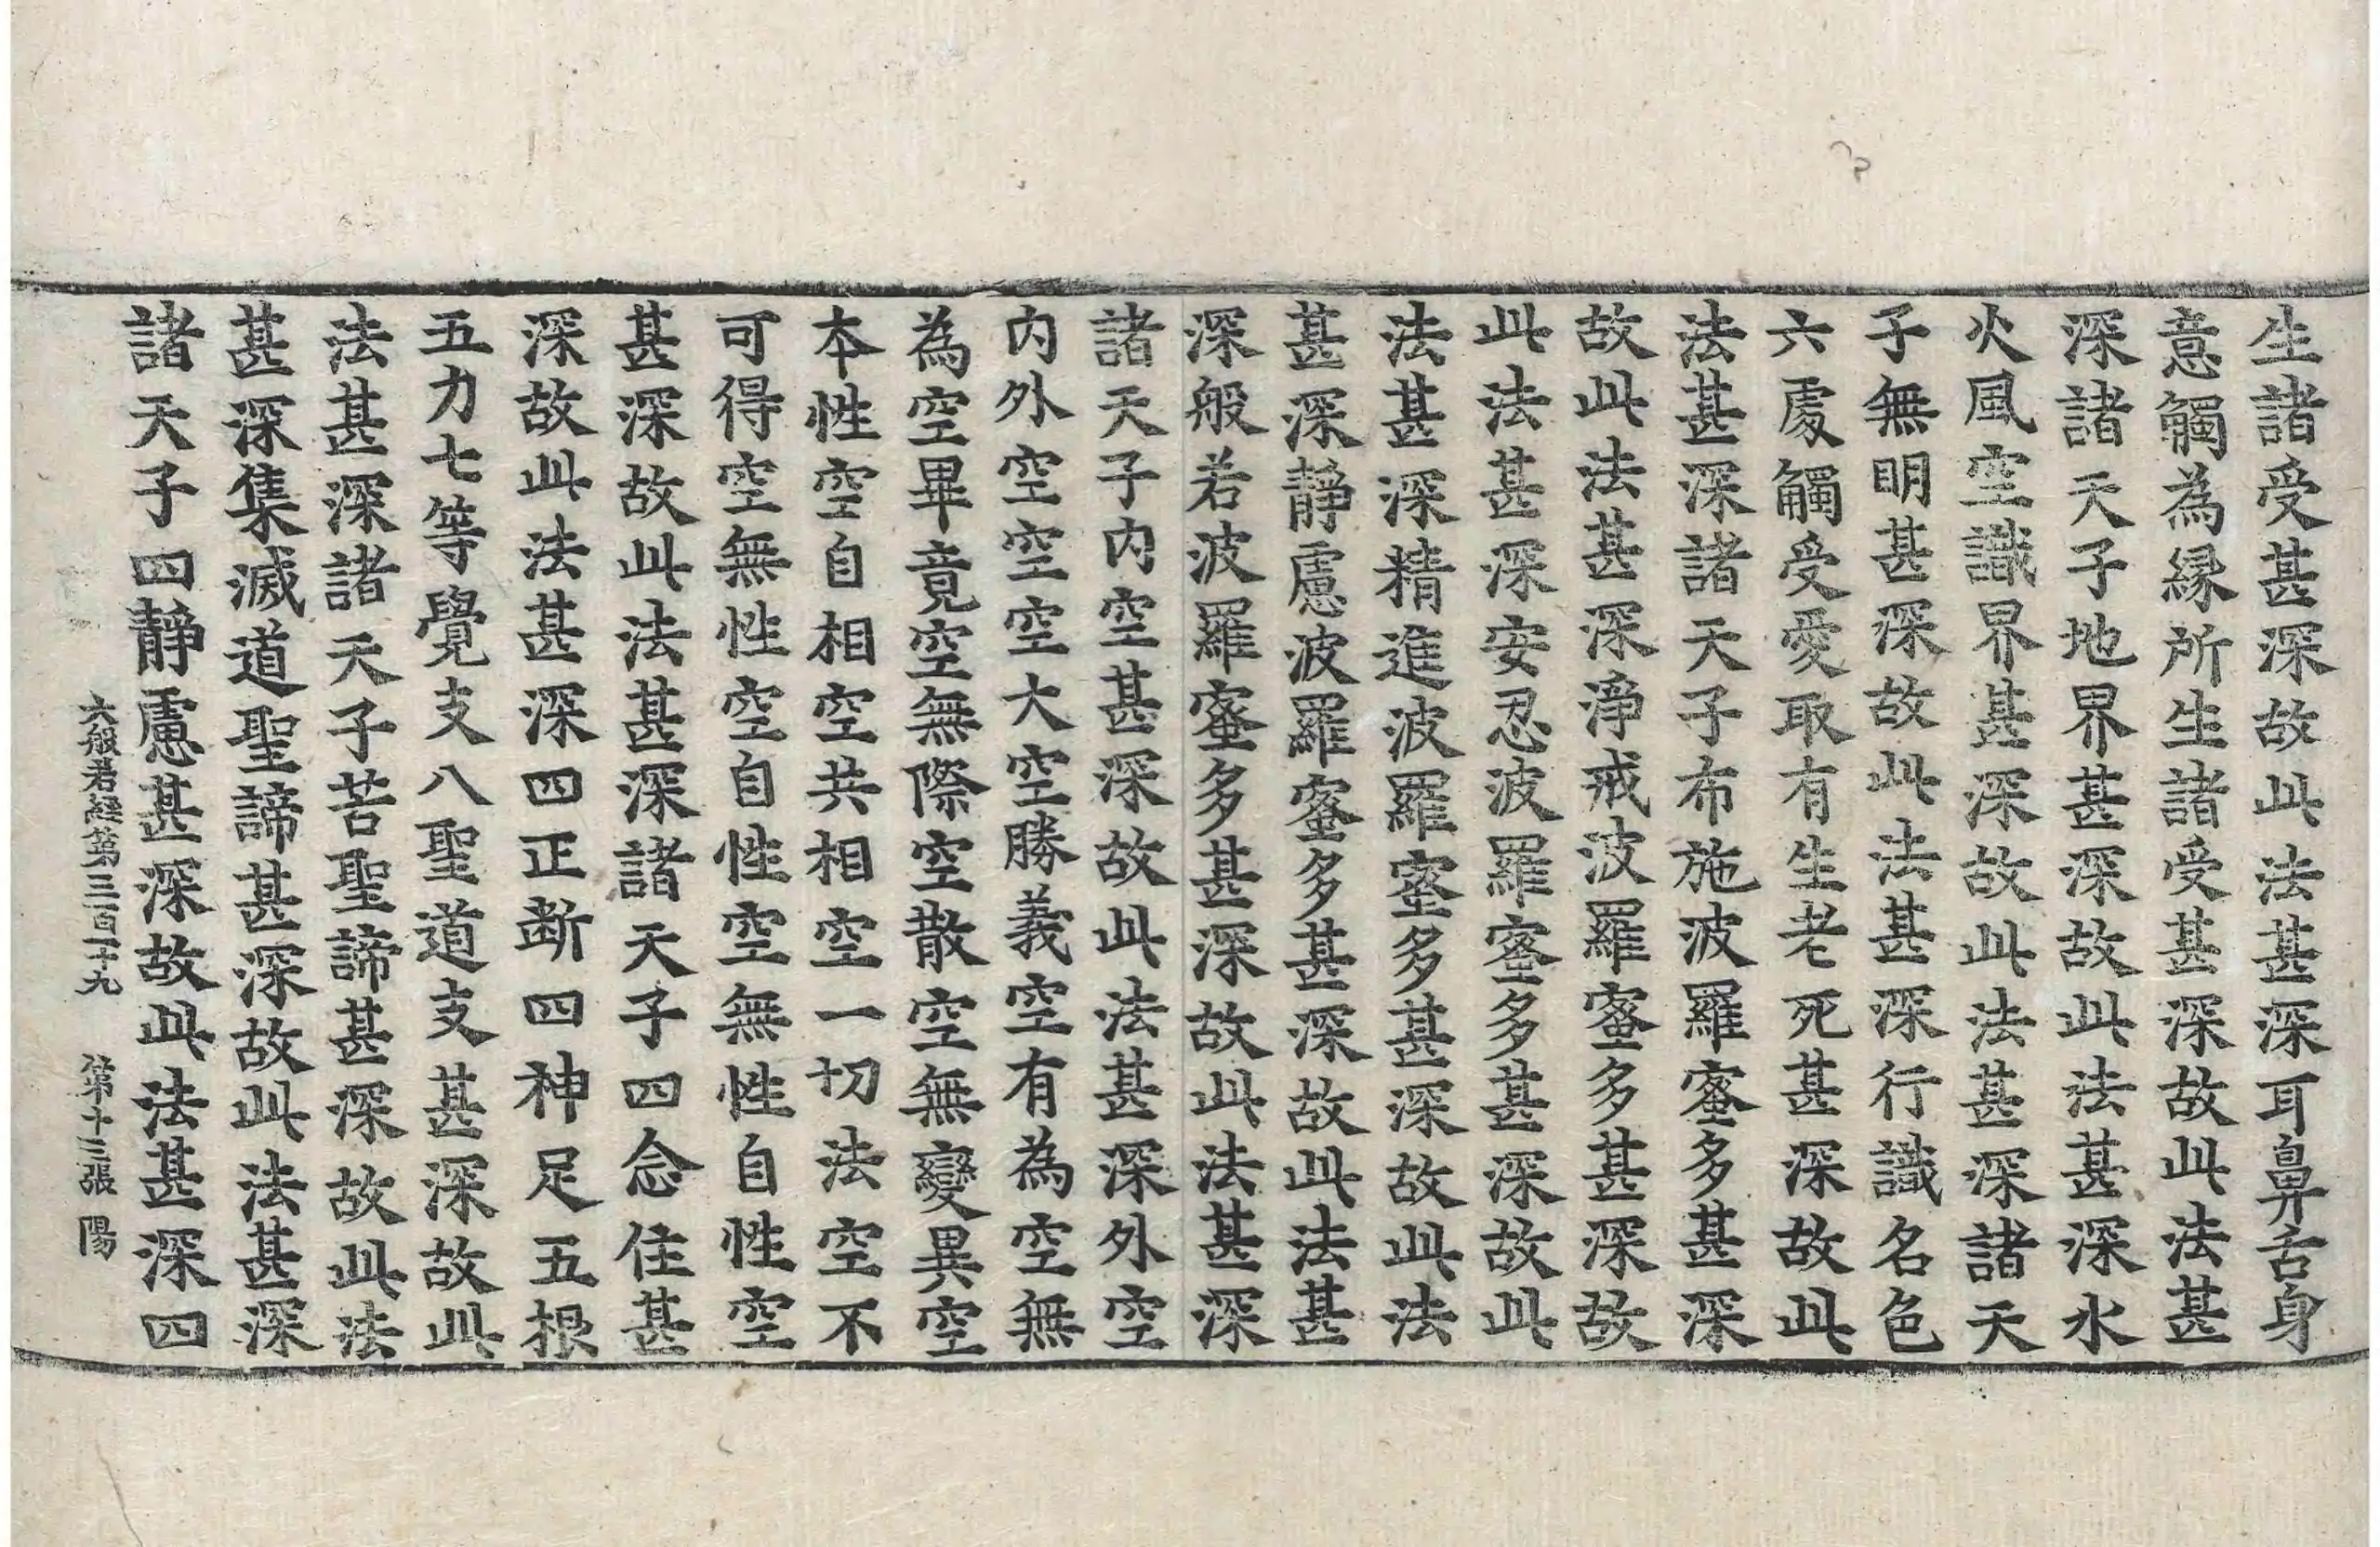 生諸受甚深故此法甚深耳鼻舌身
意觸為緣所生諸受甚深故此法甚
深諸天子地界甚深故此法甚深水
火風空識界甚深故此法甚深諸天
子無明甚深故此法甚深行識名色
六處觸受愛取有生老死甚深故此
法甚深諸天子布施波羅蜜多甚深
故此法甚深淨戒波羅蜜多甚深故
此法甚深安忍波羅蜜多甚深故此
法甚深精進波羅蜜多甚深故此法
甚深靜慮波羅蜜多甚深故此法甚
深般若波羅蜜多甚深故此法甚深
諸天子內空甚深故此法甚深外空
內外空空空大空勝義空有為空無
為空畢竟空無際空散空無變異空
本性空自相空共相空一切法空不
可得空無性空自性空無性自性空
甚深故此法甚深諸天子四念住甚
深故此法甚深四正断四神足五根
五力七等覺支八聖道支甚深故此
法甚深諸天子苦聖諦甚深故此法
甚深集滅道聖諦甚深故此法甚深
諸天子四靜慮甚深故此法甚深四
大般若經第三百一十九 第十三張 陽